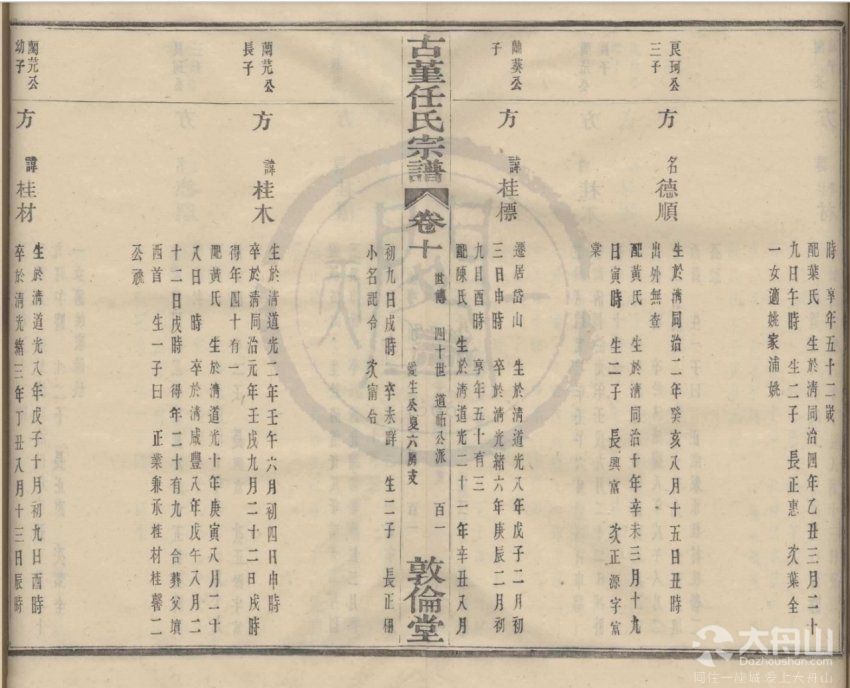 時 享年五十二歲
配葉氏 生於清同治四年乙丑三月二十
九日午時 生二子 長正惠 次葉全
一女適姚家浦姚
良珂公
三子
方 名 德順
生於清同治二年癸亥八月十五日丑時
出外無查
配黃氏 生於清同治十年辛未三月十九
日寅時 生二子 長興富 次正源字富
棠
子
方 諱 桂標
遷居岱山 生於清道光八年戊子二月初
三日申時 卒於清光緒六年庚辰二月初
九日酉時 享年五十有三
配陳氏 生於清道光二十一年辛丑八月
古堇任氏宗譜
卷十
世傳 四十世 道祐公派 百一
敦倫堂
初九日戌時 卒未詳 生二子 長正棚
小名記令 次甯合
蘭芫公
長子
方 諱 桂木
生於清道光二年壬午六月初四日申時
卒於清同治元年壬戌九月二十二日戌時
得年四十有一
配黃氏 生於清道光十年庚寅八月二十
八日 時 卒於清咸豐八年戊午八月二
十二日戌時 得年二十有九 合葬父墳
西首 生一子曰 正業兼承桂材桂馨二
公祧
蘭芫公
幼子
方 諱 桂材
生於清道光八年戊子十月初九日酉時
卒於清光緒三年丁丑八月十三日辰時
大舟山
Dazhoushan.com
同住一座城 爱上大舟山